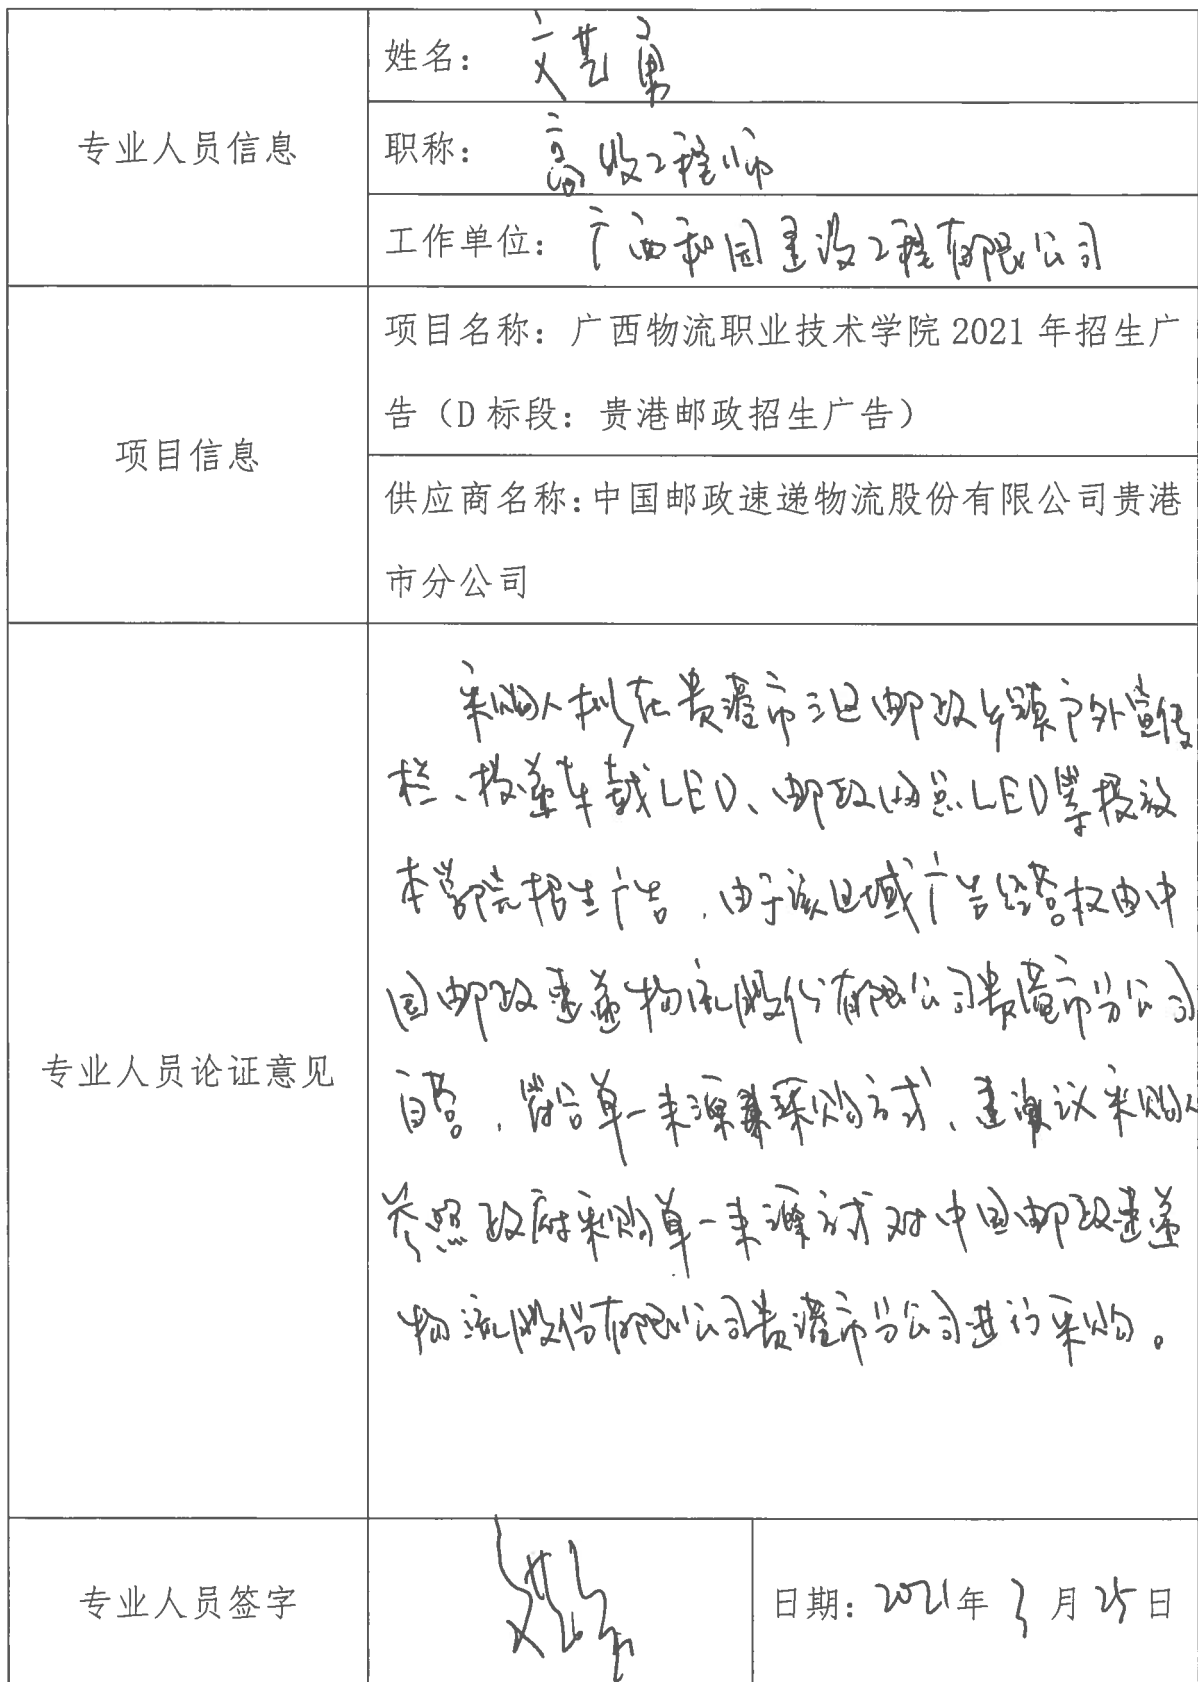 姓名：文艺勇
专业人员信息
职称：高级工程师
工作单位：广西和园建设工程有限公司
项目名称：广西物流职业技术学院 2021 年招生广
告（D 标段：贵港邮政招生广告）
项目信息
供应商名称：中国邮政速递物流股份有限公司贵港
市分公司
采购人拟在贵港市三区邮政乡镇户外宣传
栏、投递车载LED、邮政网点LED等投放
本学院招生广告，由于该区域广告经营权由中
国邮政速递物流股份有限公司贵港市分公司
专业人员论证意见
自营，符合单一来源采购方式，建议采购人
参照政府采购单一来源方式对中国邮政速递
物流股份有限公司贵港市分公司进行采购。
专业人员签字 文艺勇 日期：2021年 3 月 25 日